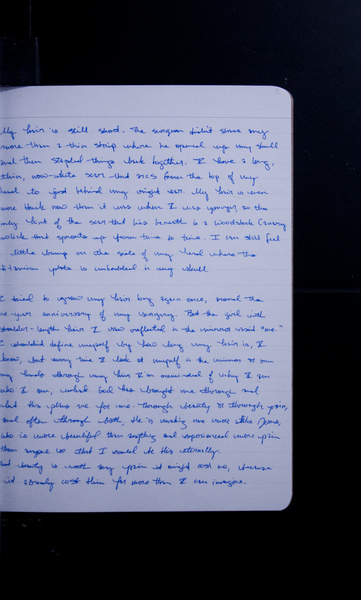 My hair is still short. The surgeon didn't shave any
more than a thin strip where he opened up my skull
and then stapled things back together. I have a long,
thin, now-white scar that arcs from the top of my
head to just behind my right ear. My hair is even
more thick now than it was when I was younger, so the
only hint of the scar that lies beneath is a Woodstock (
which sprouts up from time to time. I can still feel
little bump on the side of my head where the
titanium plate is embedded in my skull.
I tried to grow my hair long again once, around the
one-year anniversary of my surgery. But the girl with
shoulder-length hair I saw reflected in the mirror wasn't "me."
I shouldn't define myself by how long my hair is, I
know, but every time I look at myself in the mirror or run
my hands through my hair I'm reminded of why I am
who I am, what God has brought me through and
what His plans are for me. Through beauty & through pain,
and often through both, He is making me more like Jesus,
who is more beautiful than anything and experienced more pain
than anyone so that I would be His eternally.
And beauty is worth any pain it might cost me, because
it already cost Him far more than I can imagine.